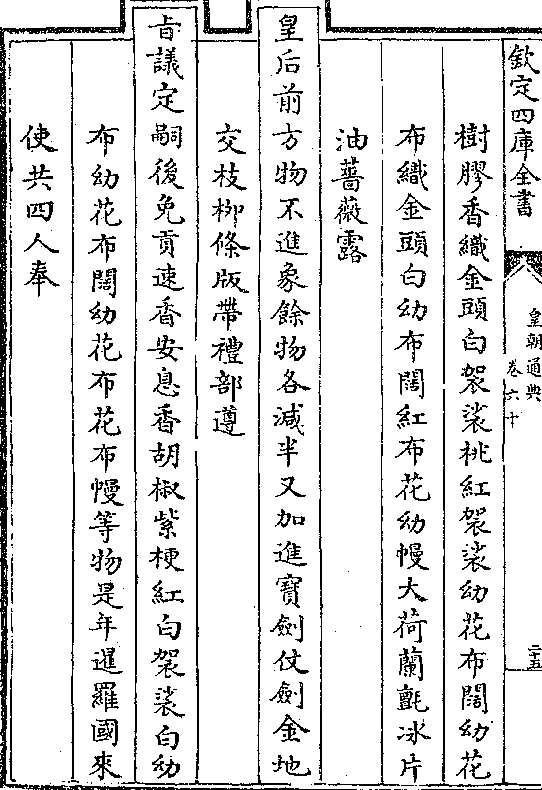 欽定四庫全書
皇朝通典
卷六十
二五
樹膠香織金頭白袈裟桃紅袈裟幼花布闊幼花
布織金頭白幼布闊紅布花幼幔大荷蘭氈冰片
油薔薇露
皇后前方物不進象餘物各減半又加進寶劍仗劍金地
交枝柳條版帶禮部遵
㫖議定嗣後免貢速香安息香胡椒紫梗紅白袈裟白幼
布幼花布闊幼花布花布幔等物是年暹羅國來
使共四人奉